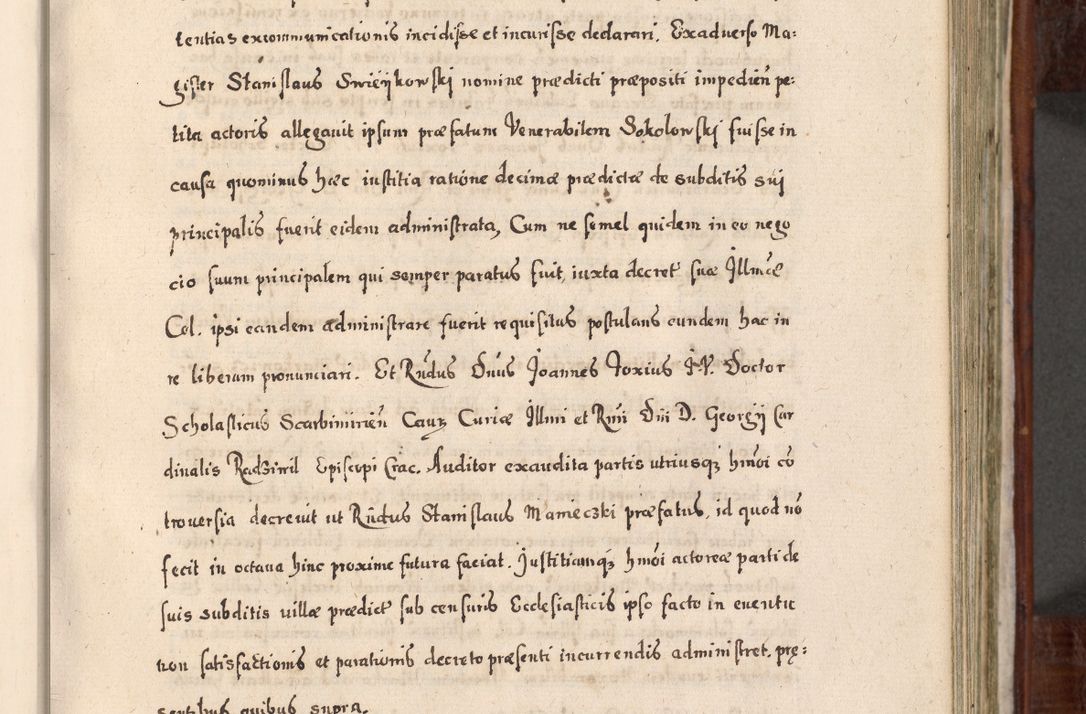 tentias excommunicationis incidisse et incurisse declarari. Exaduerso Ma:
gister Stanislaus Swieÿkowskj nomine prædicti præpositi impedien̄ pe:
tita actoris allegauit ipsum præfatum Venerabilem Sokolowskj fuisse in
causa quominus hæc iustitia ratione decimæ prædictæ de subditis suj
principalis fuerit eidem administrata, Cum ne semel quidem in eo nego
cio suum principalem qui semper paratus fuit, iuxta decret suæ Illmæ
Cel. ipsi eandem administrare fuerit requisitus postulans eundem hac in
re liberum pronunciari. Et Rn̄dus Dn̄us Joannes Foxius J.V. Doctor
Scholasticus Scarbimirien̄ Cauz Curiæ Illmi et Rm̄i Dn̄i D. Georgÿ Car
dinalis Radziwil Episcopi Crac. Auditor exaudita partis utriusqz hm̄oi cō
trouersia decreuit ut Rn̄dus Stanislaus Manieczki præfatus, id quod nō
fecit in octaua hinc proxime futura faciat. Justitiamqz hmōi actoreæ parti de
suis subditis uillæ prædict sub censuris Ecclesiasticis ipso facto in euentu
non satisfactionis et parationis decreto præsenti incurrendis administret. prę:
sentibus quibus supra.